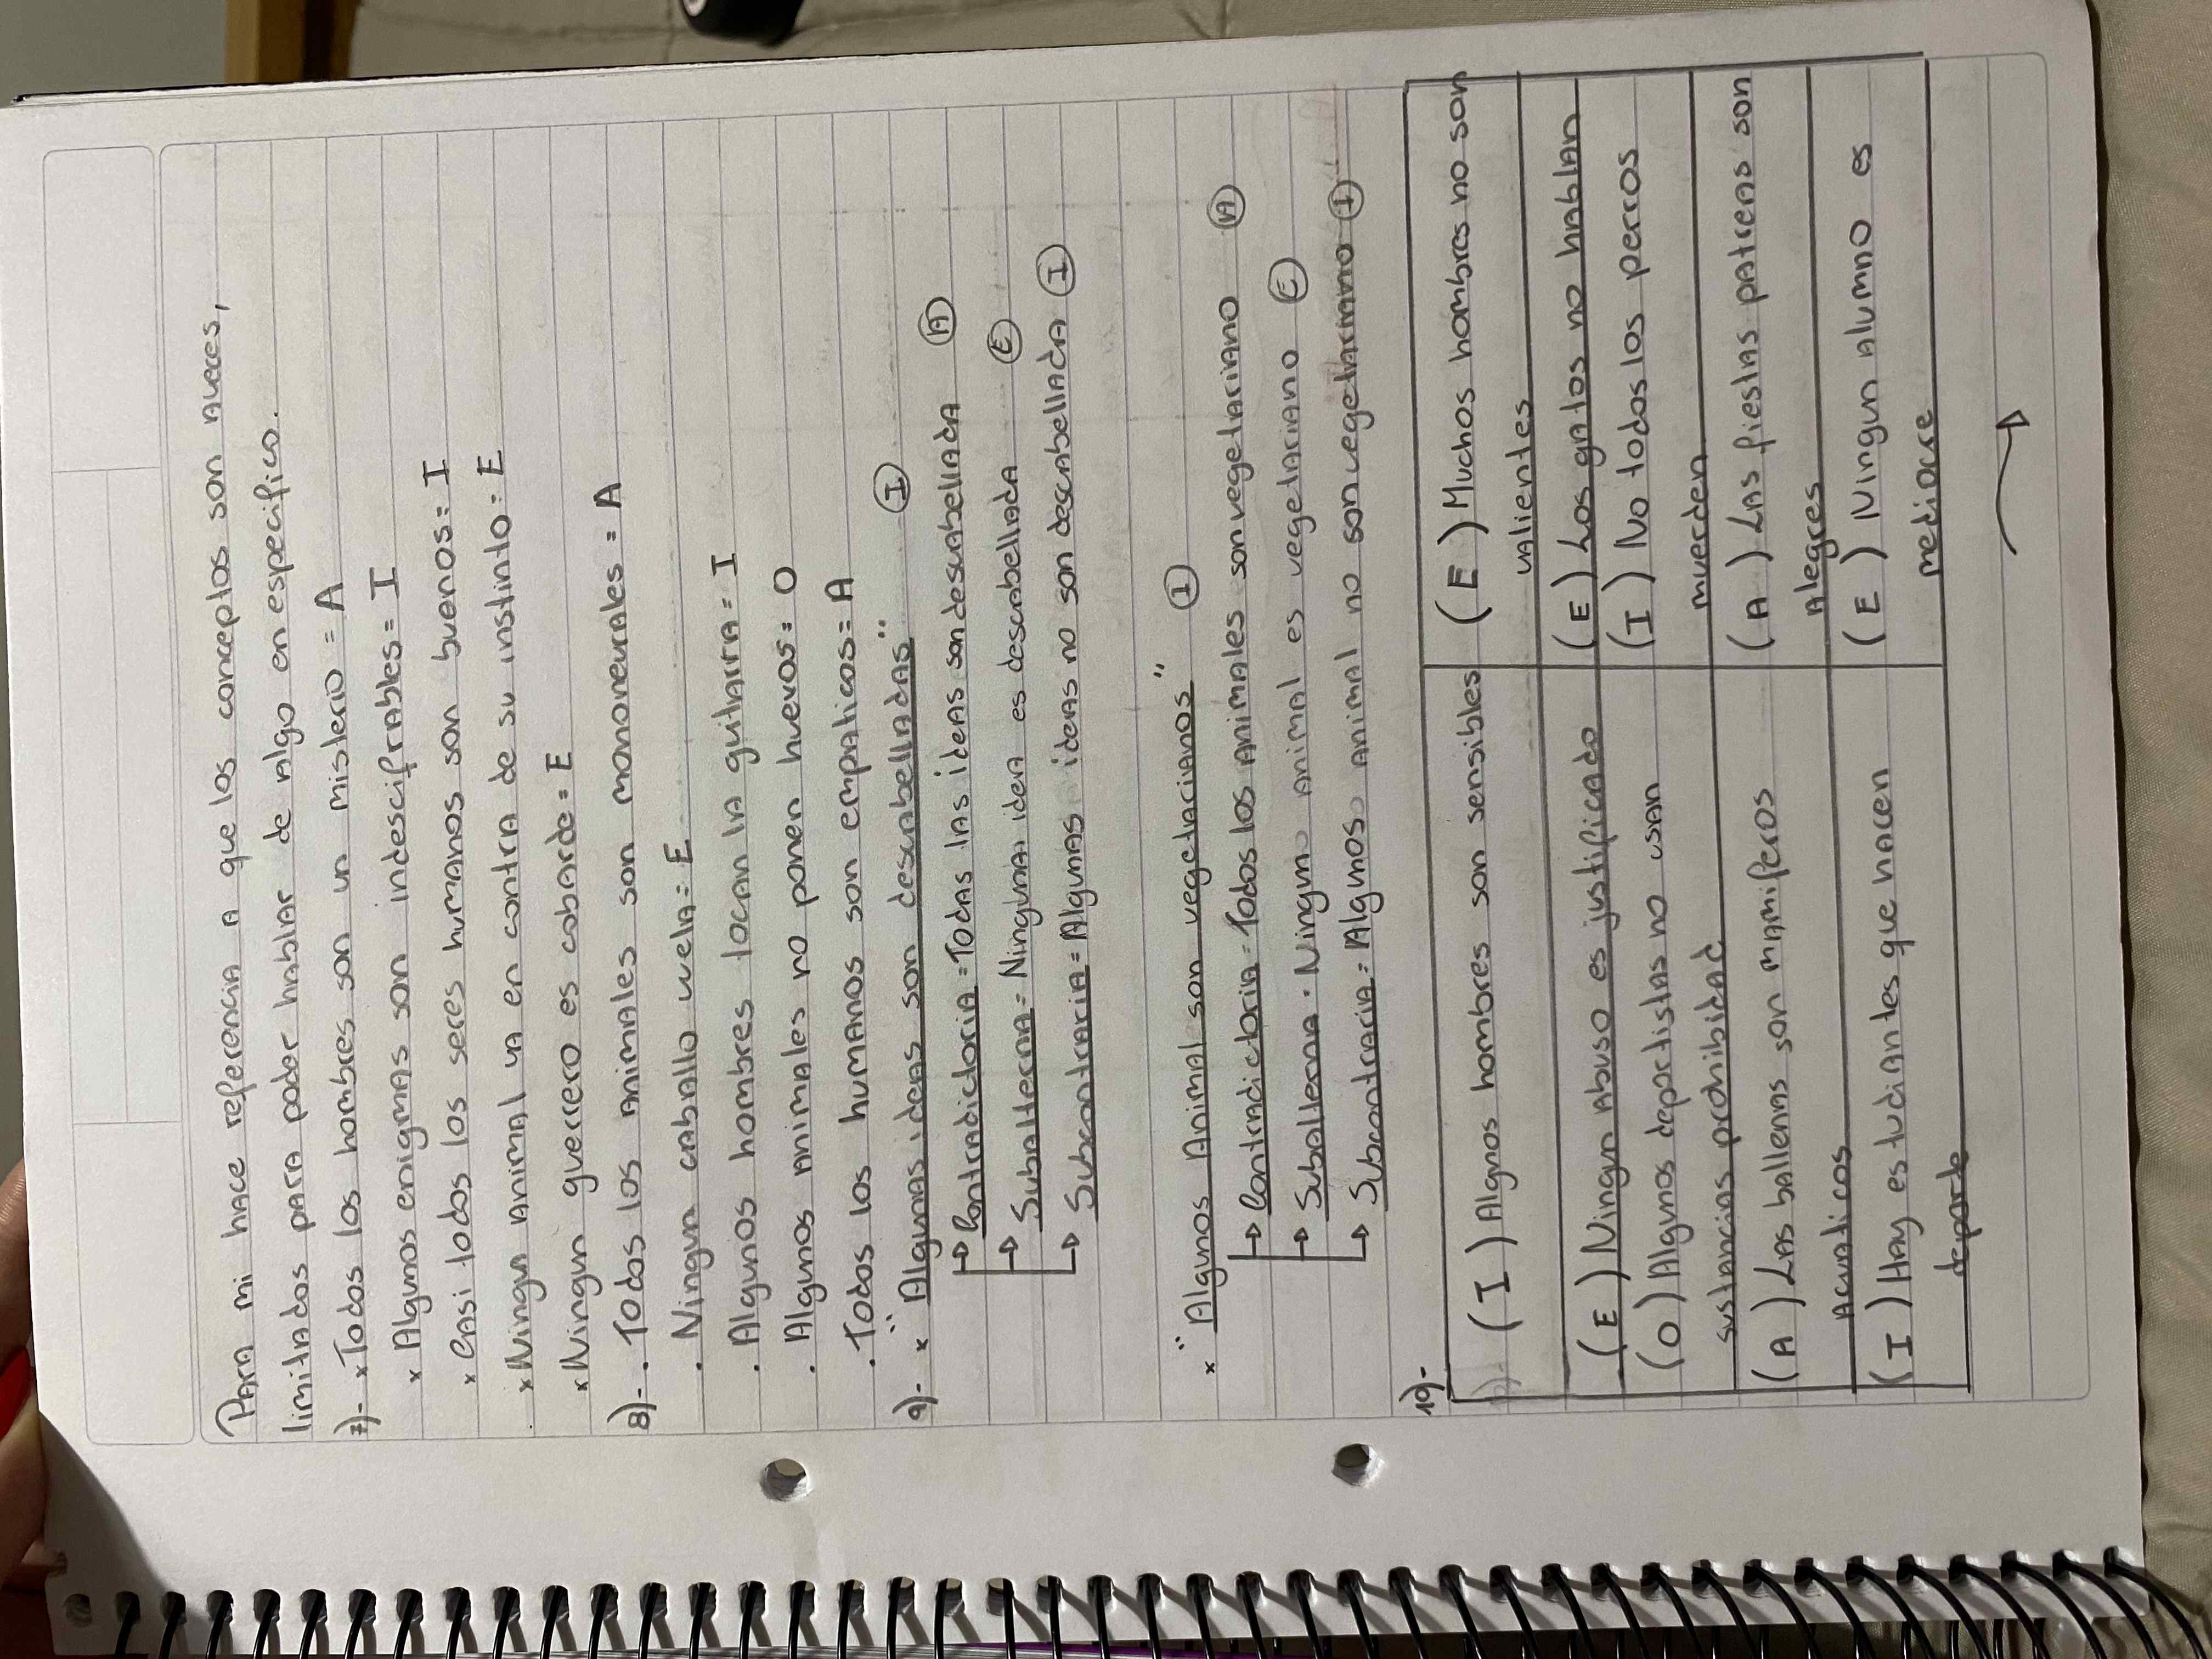 Para mi hace referencia a que los conceptos son aveces,
limitados para poder hablar de algo en especifico.
7)- x Todos los hombres son un misterio = A
x Algunos enigmas son indescifrables = I
x Casi todos los seres humanos son buenos = I
x Ningun animal va en contra de su instinto = E
x Ningun guerrero es cobarde = E
8)- . Todos los animales son mononeurales = A
. Ningun caballo vuela = E
. Algunos hombres tocan la guitarra = I
. Algunos animales no ponen huevos = O
. Todos los humanos son empaticos = A
9)- x "Algunas ideas son descabelladas" (I)
→ Contradictoria = Todas las ideas son descabellada (A)
→ Subalterna = Ninguna idea es descabellada (E)
→ Subcontraria = Algunas ideas no son descabellada (I)
x "Algunos Animal son vegetarianos" (I)
→ Contradictoria = Todos los animales son vegetariano (A)
→ Subalterna = Ningun animal es vegetariano (E)
→ Subcontraria = Algunos animal no son vegetariano (I)
10)-
(I) Algunos hombres son sensibles
(E) Muchos hombres no son
valientes
(E) Ningun abuso es justificado
(E) Los gatos no hablan
(O) Algunos deportistas no usan
sustancias prohibidad
(I) No todos los perros
muerden
(A) Las ballenas son mamiferos
acuaticos
(A) Las fiestas patreas son
alegres
(I) Hay estudiantes que hacen
deporte
(E) Ningun alumno es
mediocre